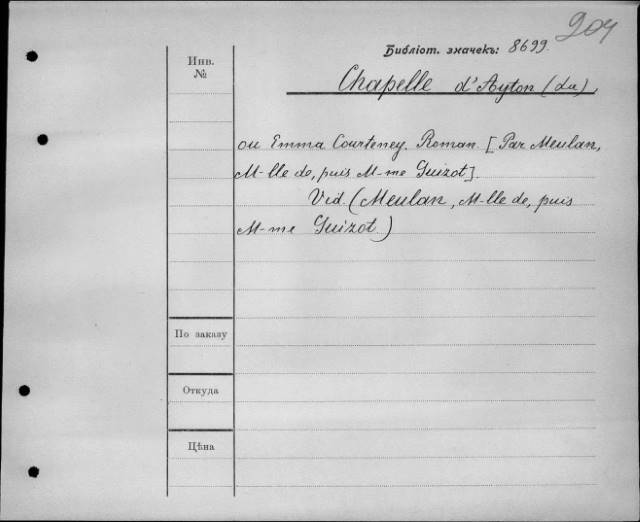 204
Библіот. значекъ: 8699.
Инв.
№
Chapelle d'Ayton (La),
ou Emma Courteney. Roman. [Par Meulan,
M-lle de, puis M-me Guizot].
Vid. (Meulan, M-lle de, puis
M-me Guizot.)
По заказу
Откуда
Цѣна